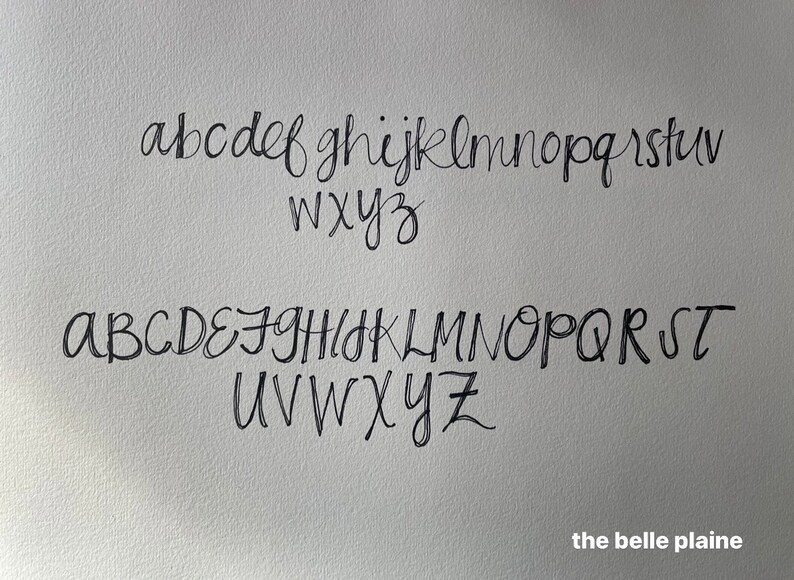 abcdefghijklmnopqrstuv
wxyz
ABCDEFGHIJKLMNOPQRST
UVWXYZ
the belle plaine